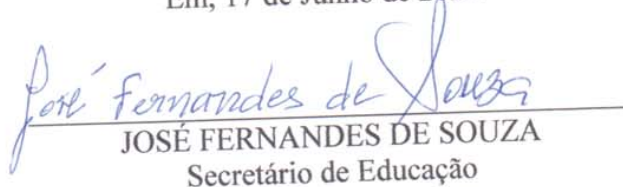 Em, 17 de Junho de
José Fernandes de Souza
JOSÉ FERNANDES DE SOUZA
Secretário de Educação